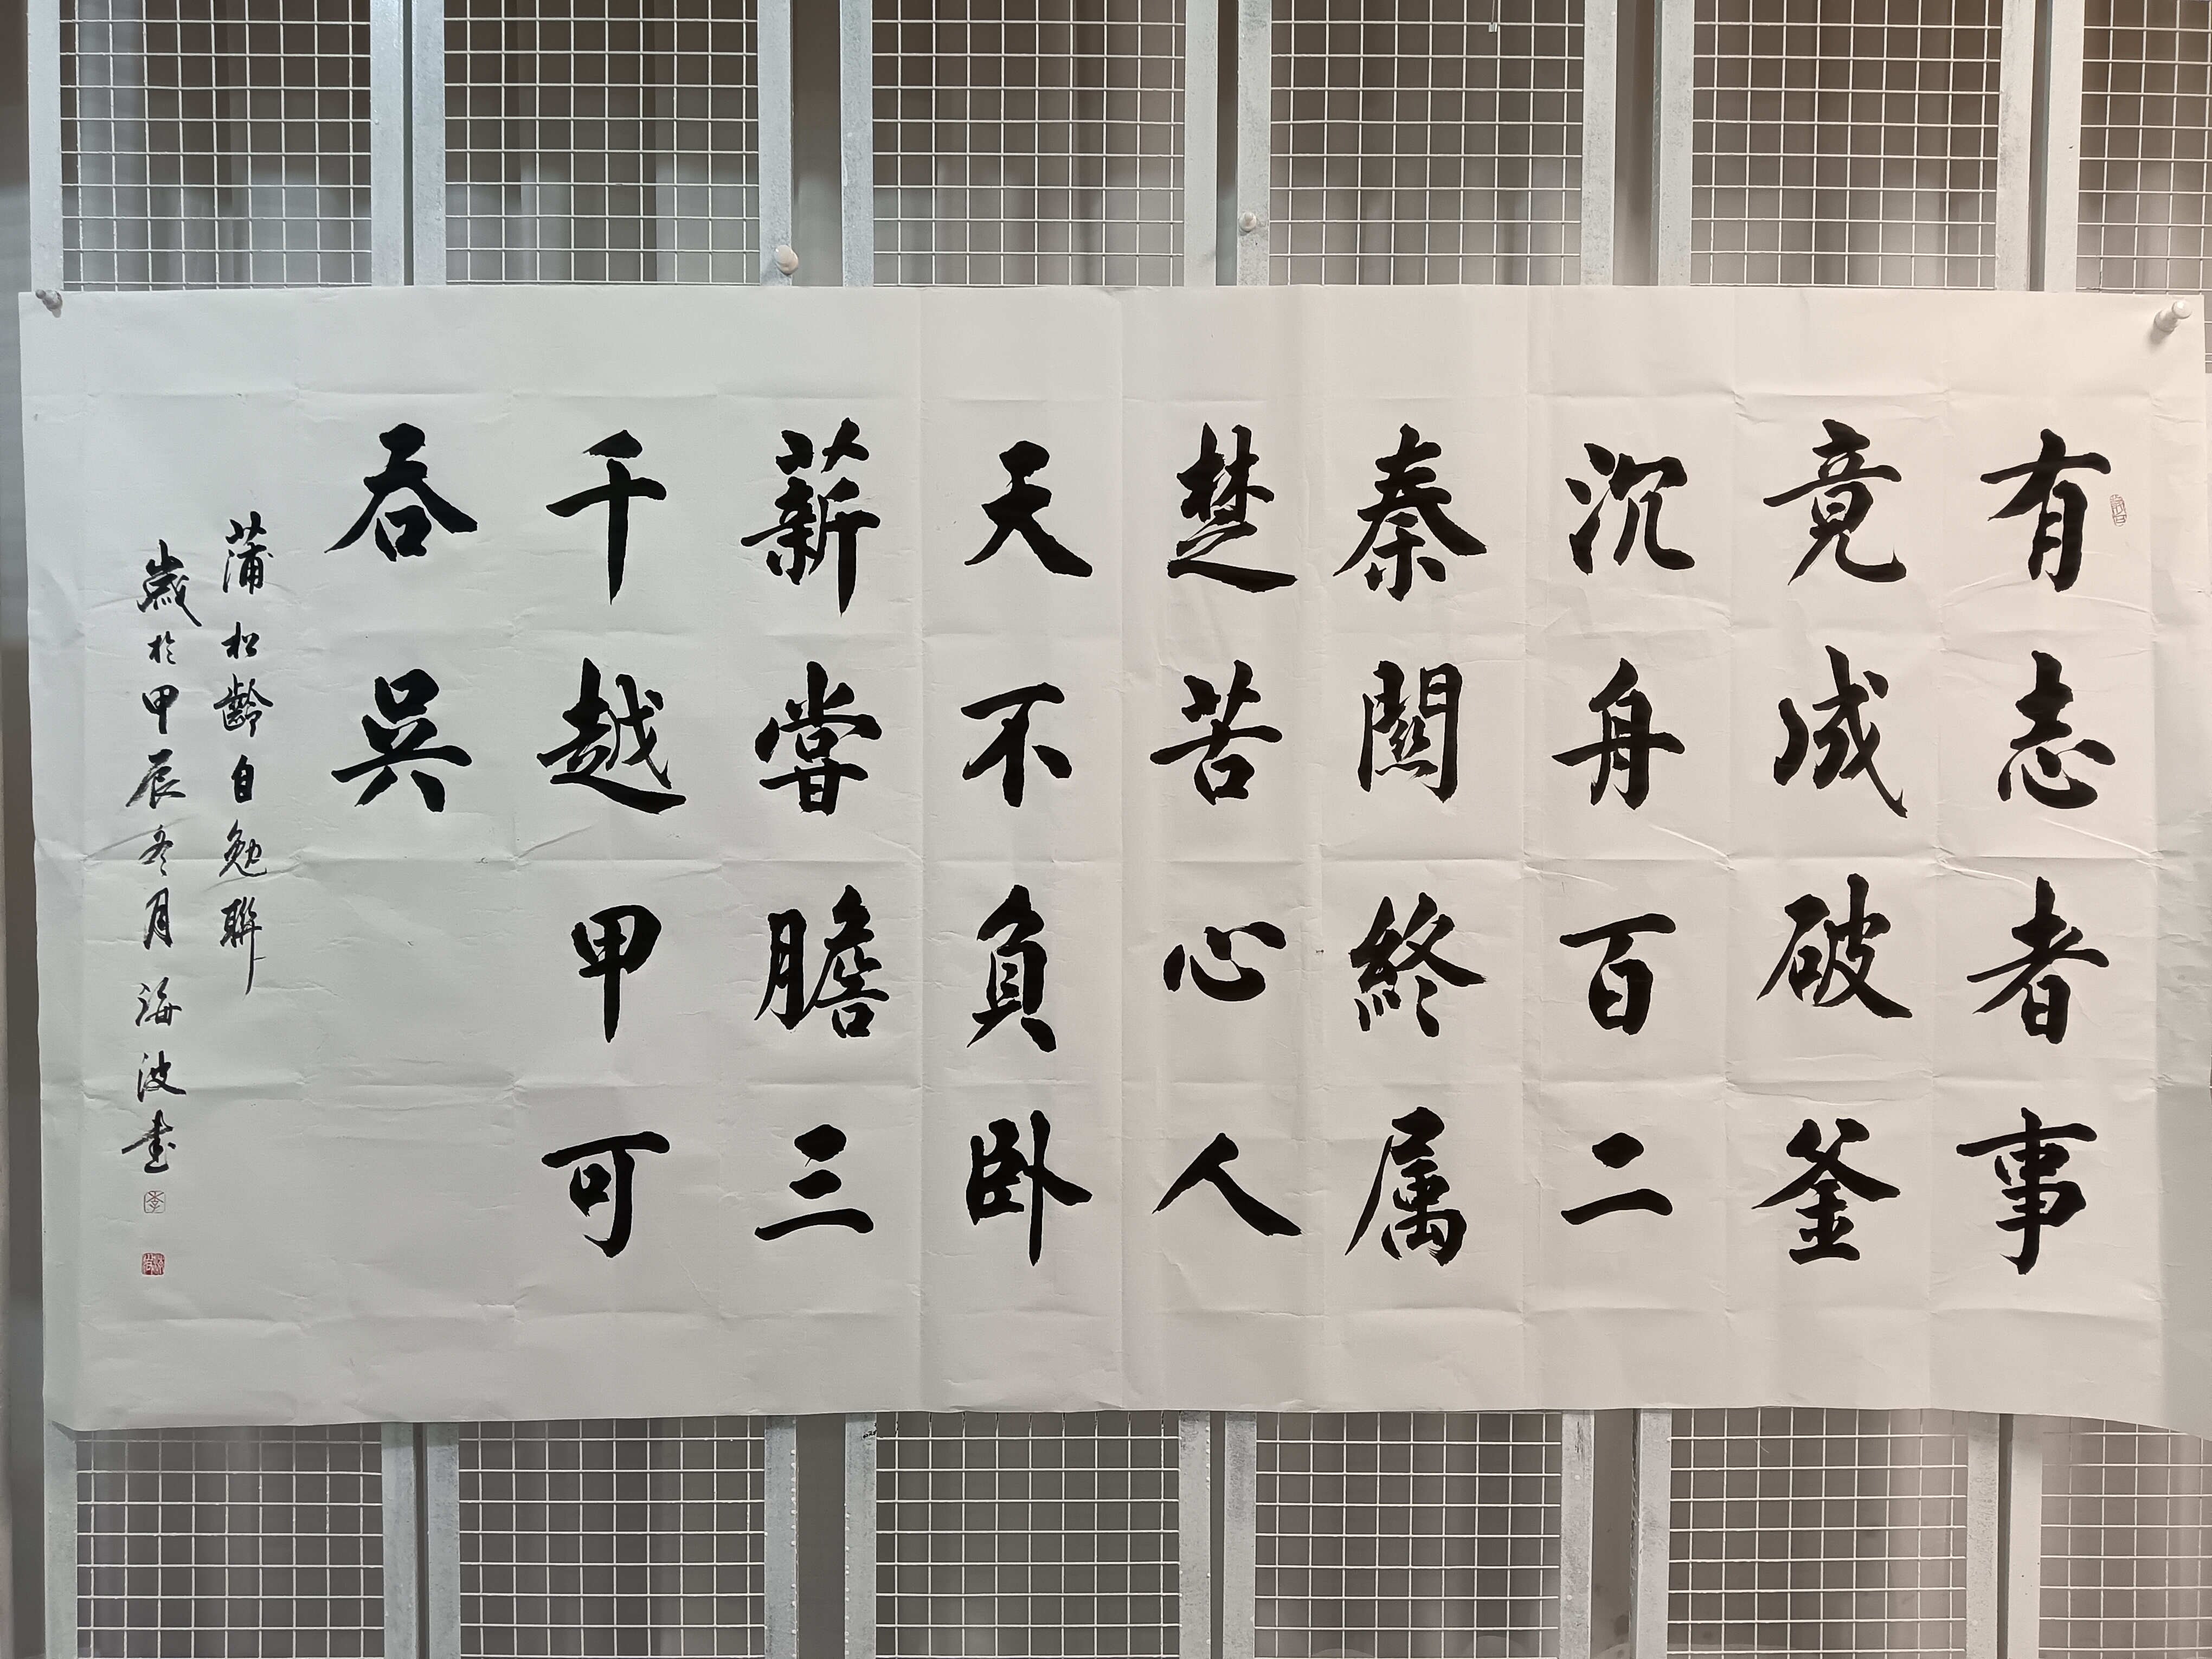 有志者事
竟成破釜
沉舟百二
秦関終属
楚苦心人
天不負卧
薪嘗膽三
千越甲可
吞吳
蒲松齡自勉聯
歲於甲辰冬月海波書